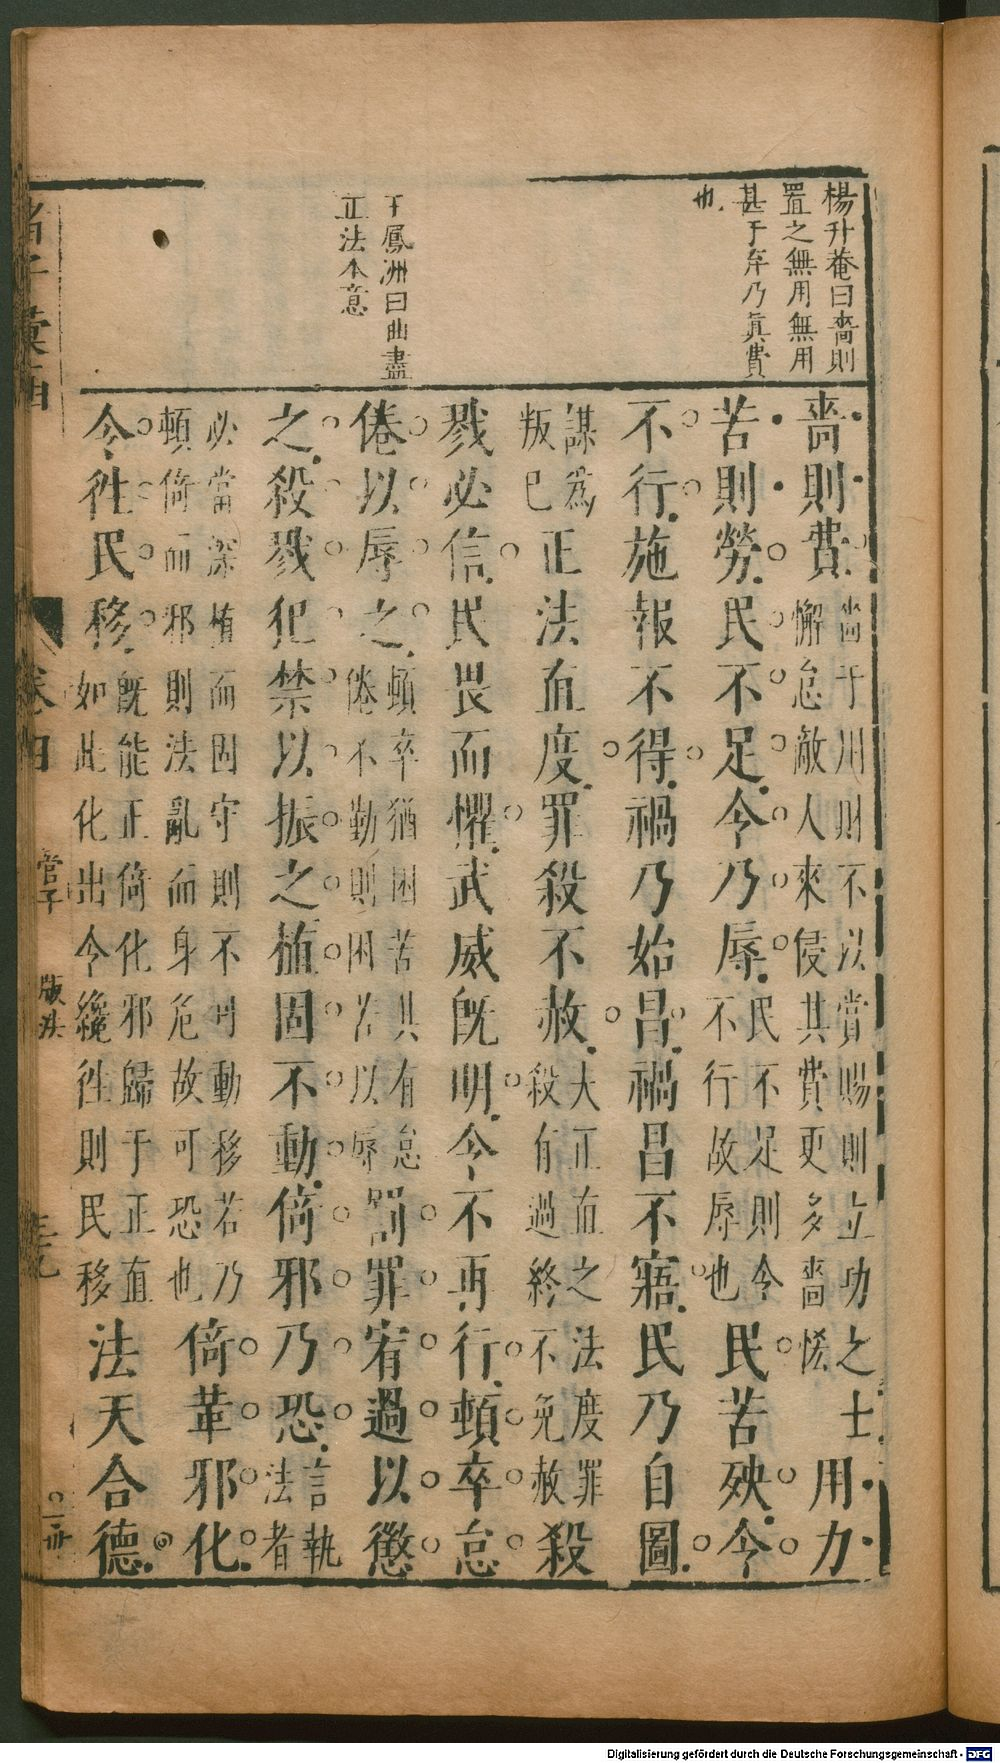 楊升菴曰嗇則
置之無用無用
甚于弃乃眞費
也
王鳳洲曰曲盡
正法本意
嗇則費嗇于川財不以賞賜則立功之士懈怠敵人來侵其費更多嗇悋用力
苦則勞民不足令乃辱民不足則令不行故辱也民苦殃令
不行施報不得禍乃始昌禍昌不寤民乃自圖
謀爲叛巳正法直度罪殺不赦大正直之法度罪殺有過終不免赦殺
戮必信民畏而懼武威旣明令不再行頓卒怠
倦以辱之頓卒猶困苦其有怠倦不勤則困苦以辱罰罪宥過以懲
之殺戮犯禁以振之植固不動倚邪乃恐言執法者
必當深植而固守則不可動移若乃頓倚而邪則法亂而身危故可恐也倚革邪化
令徃民移旣能正倚化邪歸于正直如此化出令纔徃則民移法天合德
諸子彙函
卷四
管子
版法
二冊
Digitalisierung gefördert durch die Deutsche Forschungsgemeinschaft - DFG